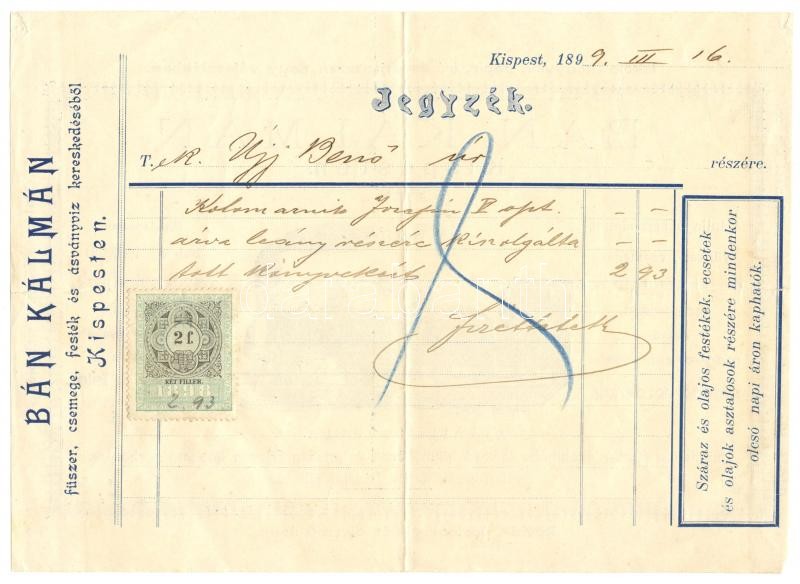 BÁN KÁLMÁN
fűszer, csemege, festék és ásványvíz kereskedéséből
Kispesten.
Kispest, 1899. III 16.
Jegyzék.
T. . k. Újj Benő úr részére.
Jozefin V oszt. — —
árva leány részére kiszolgálta — —
tott könyvekért 2 93
fizettetett
2 f.
KÉT FILLÉR.
1898
2.93
Száraz és olajos festékek, ecsetek
és olajok asztalosok részére mindenkor
olcsó napi áron kaphatók.